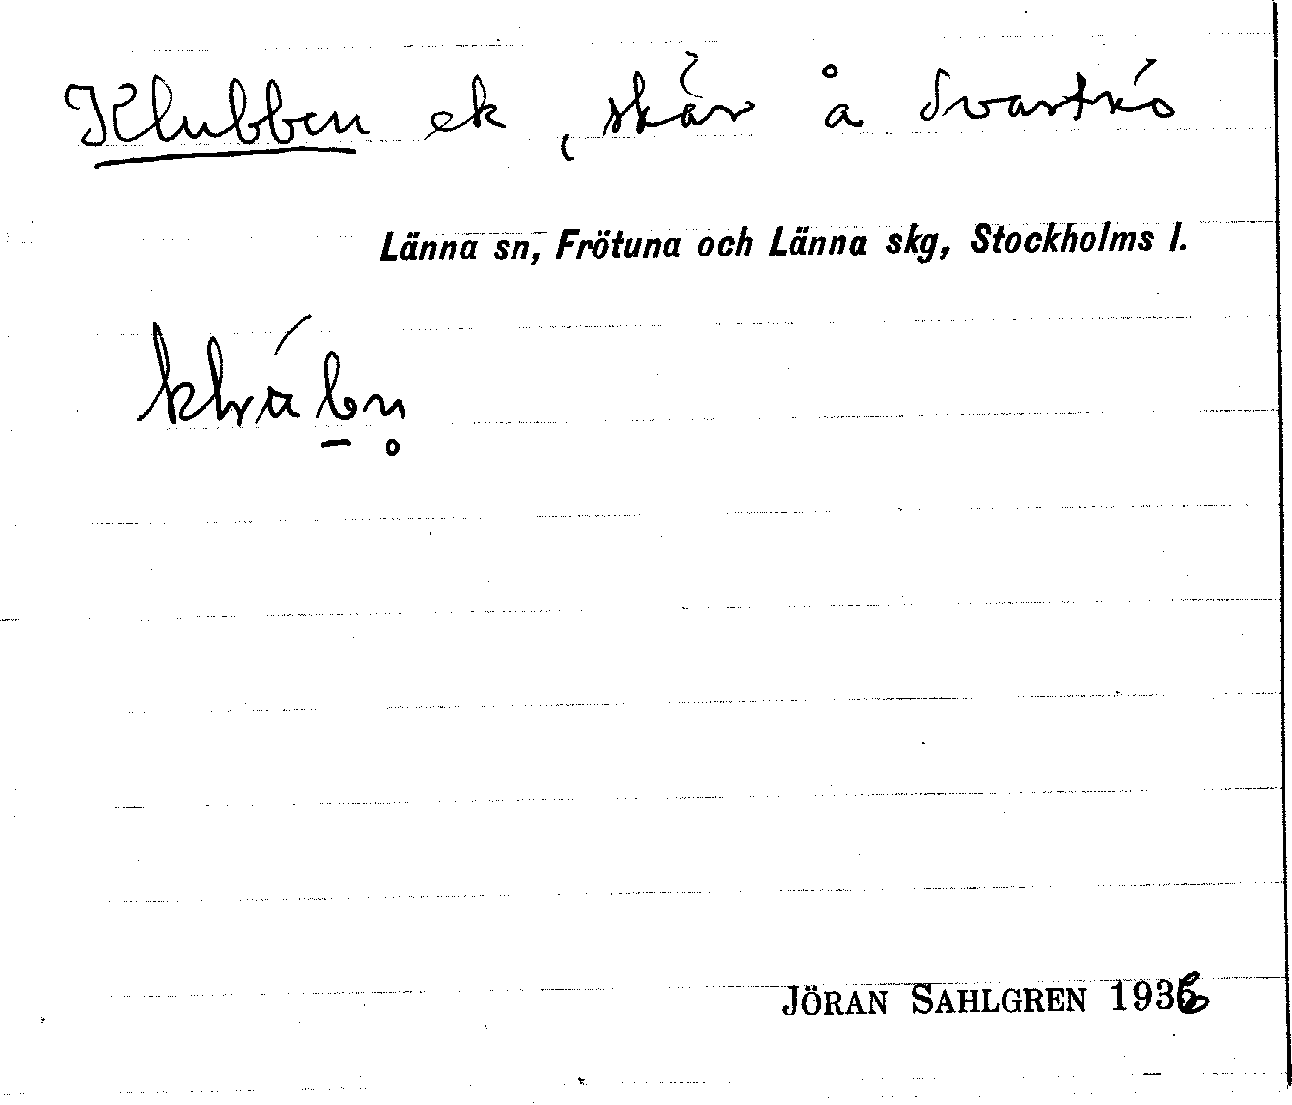 Klubben ek, skär å Svartnö
Länna sn, Frötuna och Länna skg, Stockholms l.
JÖRAN SAHLGREN 1936